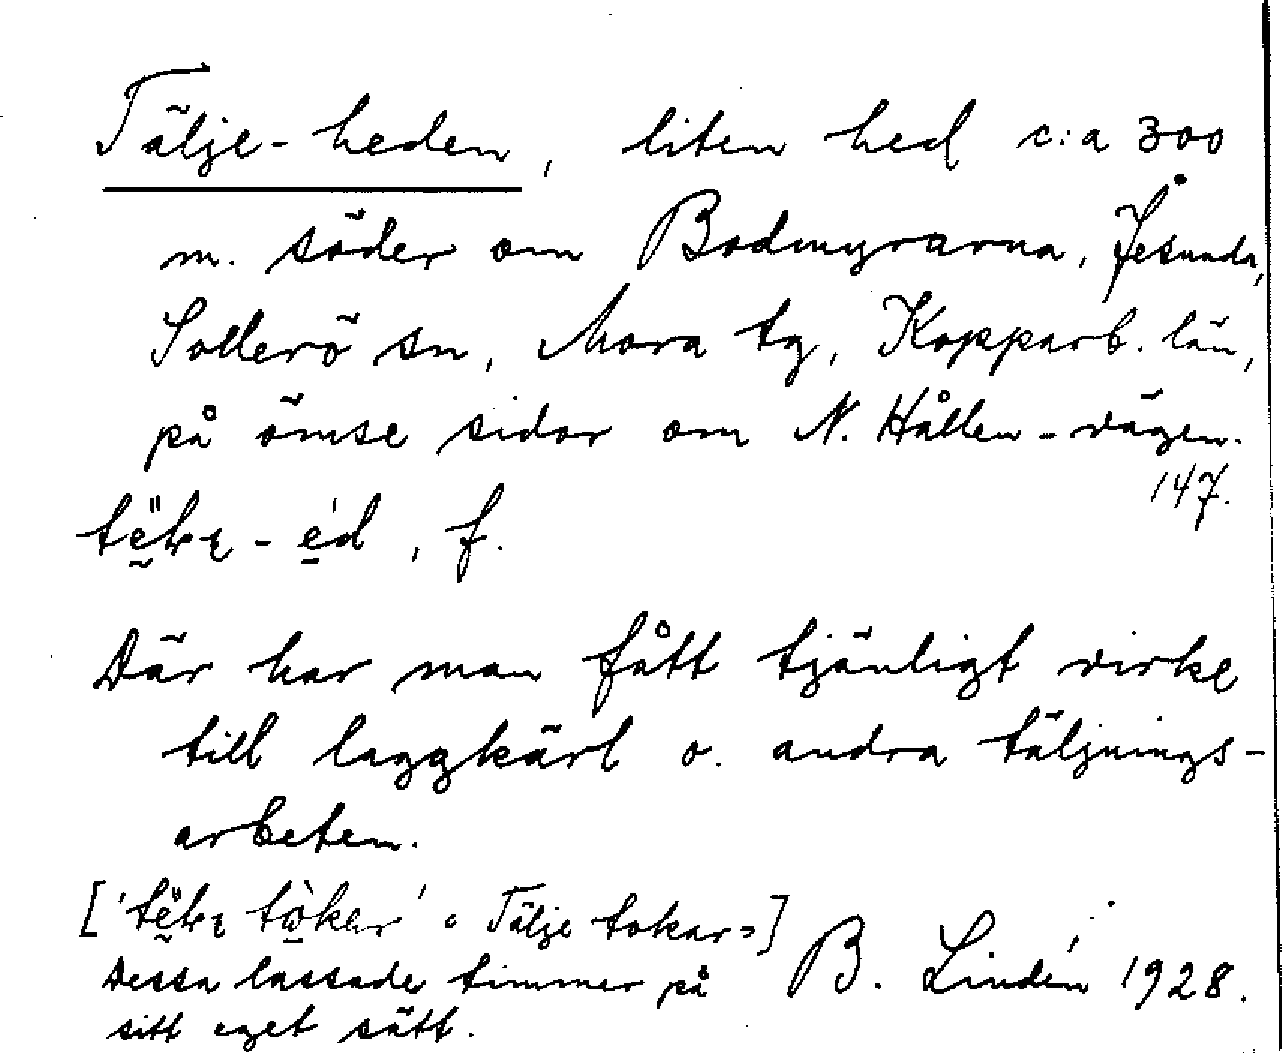 Tälje-heden, liten hed c:a 300
m. söder om Bodmyrarna, Jesunda,
Sollerö sn, Mora tg, Kopparb. län,
på ömse sidor om N. Hållen-vägen.
147.
f.
Där har man fått tjänligt virke
till laggkärl o. andra täljnings-
arbeten.
Tälje tokar
Dessa lassade timmer på
sitt eget sätt.
B. Lindén 1928.